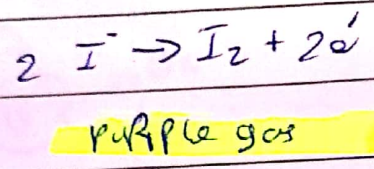 2 I⁻ → I₂ + 2e⁻
purple gas